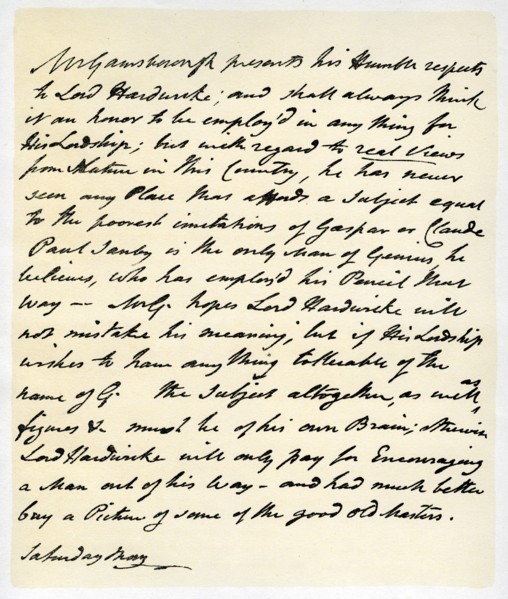 Mr Gainsborough presents his Humble respects
to Lord Hardwicke; and shall always think
it an honor to be employ'd in any thing for
His Lordship; but with regard to real Views
from Nature in this Country, he has never
seen any Place that affords a Subject equal
to the poorest imitations of Gaspar or Claude
Paul Sanby is the only Man of Genius, he
believes, who has employ'd his Pencil that
way — Mr G. hopes Lord Hardwicke will
not mistake his meaning, but if His Lordship
wishes to have any thing tollerable of the
name of G. the Subject altogether, as well as
figures &c must be of his own Brain; otherwise
Lord Hardwicke will only pay for Encouraging
a Man out of his Way - and had much better
buy a Picture of some of the good old Masters.
Saturday Morg